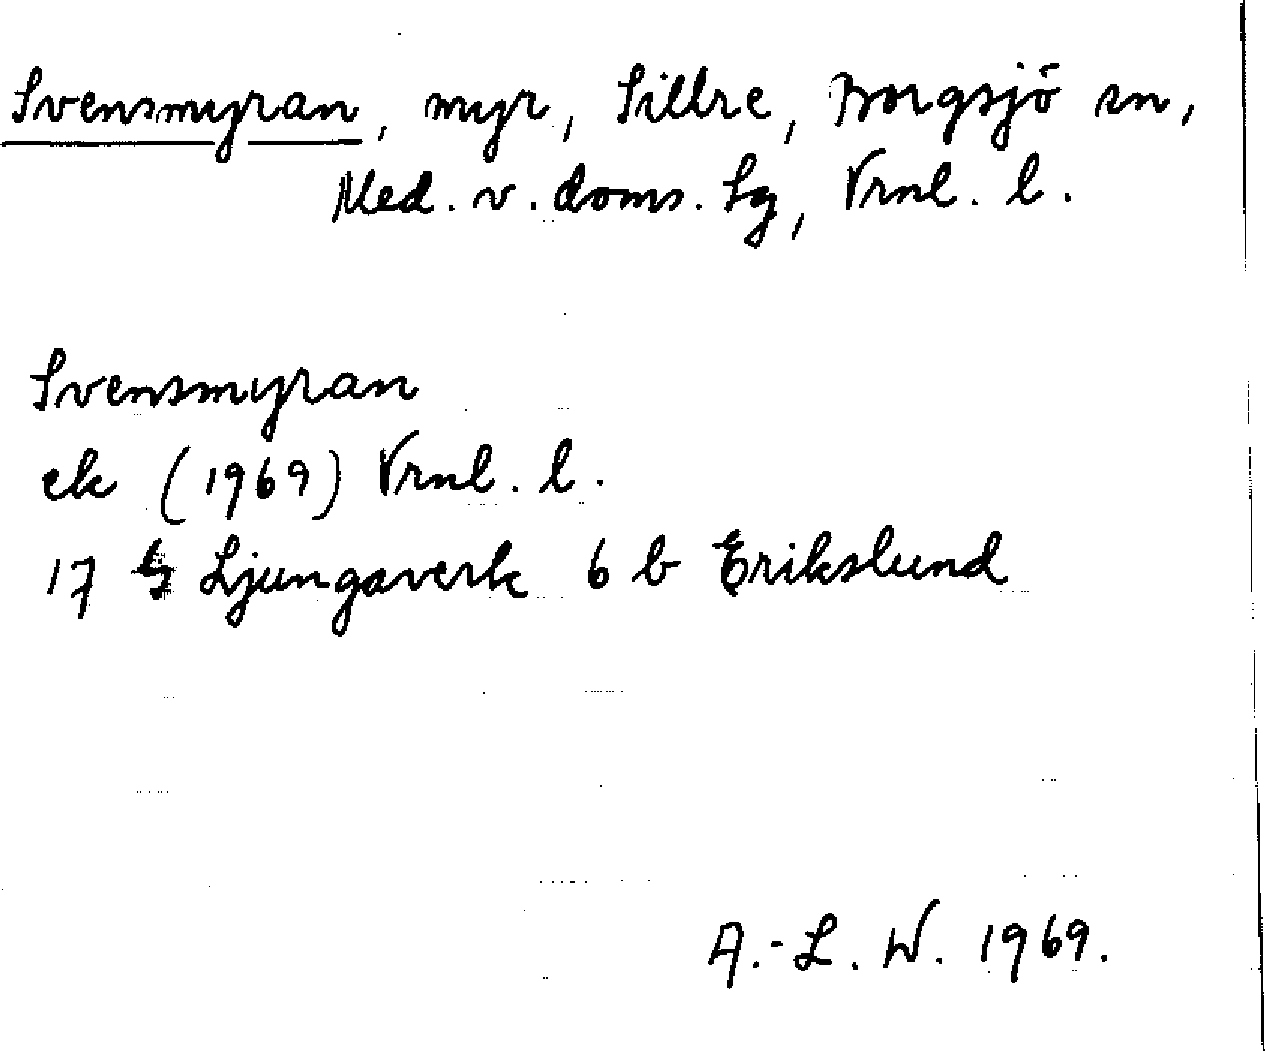 Svensmyran, myr, Sillre, Borgsjö sn,
Med. v. doms. sg, Vrnl. l.
Svensmyran
ek (1969) Vrnl. l.
17 G Ljungaverk 6 b Erikslund
A.-L. W. 1969.